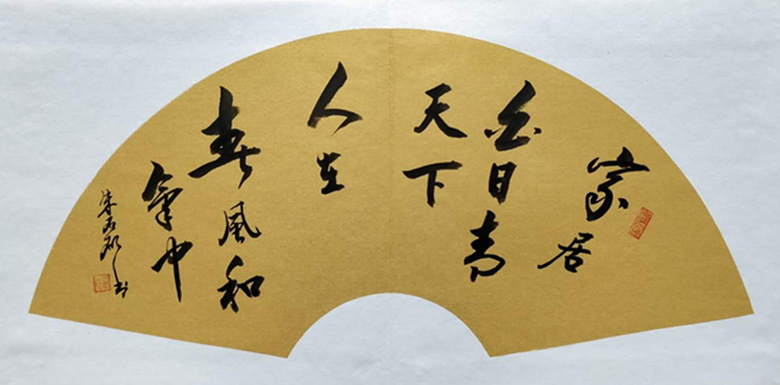 家居
白日青
天下
人在
春風和
氣中
朱
书